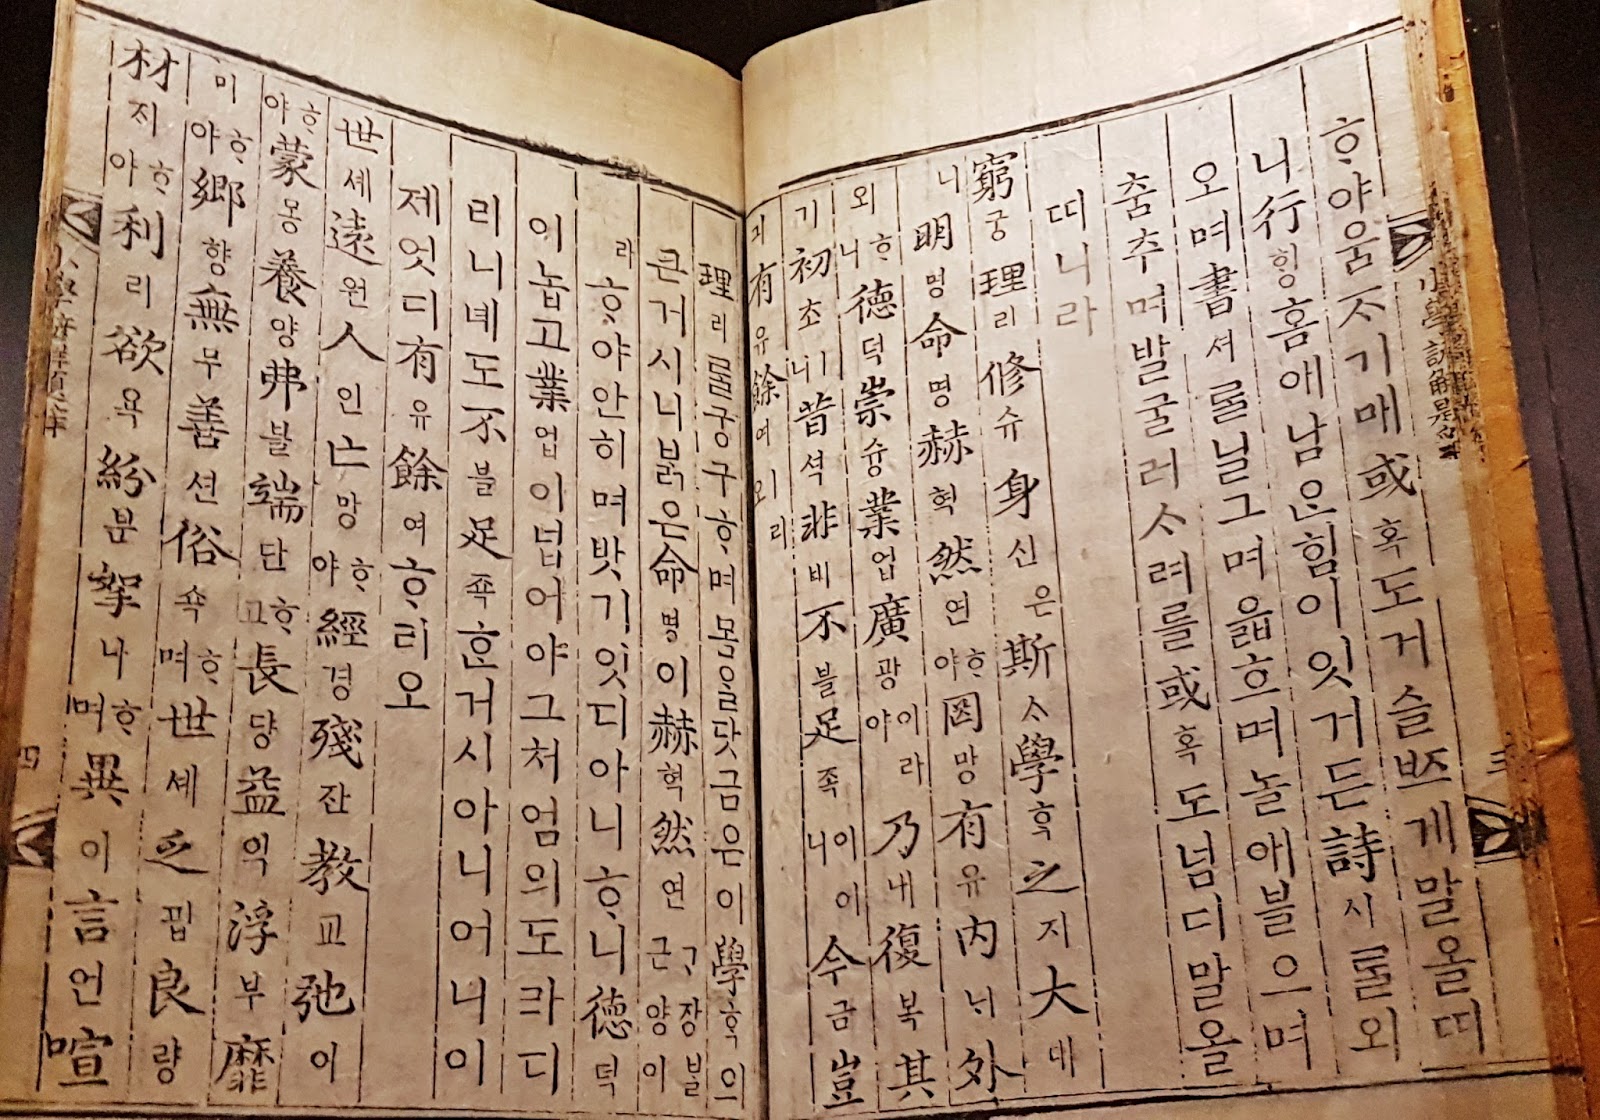 ᄒᆞ야움ᄌᆞ기매或혹도거슬ᄧᅳ게말올띠
니行ᄒᆡᆼ홈애남은힘이잇거든詩시ᄅᆞᆯ외
오며書셔ᄅᆞᆯ닐그며읇흐며놀애블으며
춤추며발굴러ᄉᆞ려를或혹도넘디말올
띠니라
窮궁理리修슈身신은斯ᄉᆞ學ᄒᆞᆨ之지大대
니明명命명赫혁然연ᄒᆞ야罔망有유內ᄂᆡ外
외ᄒᆞ니德덕崇슝業업廣광이라야乃내復복其
기初초니昔셕非비不블足족이니이今금豈
긔有유餘여리오
理리ᄅᆞᆯ궁구ᄒᆞ며몸을닷금은이學ᄒᆞᆨ의
큰거시니ᄇᆞᆰ은命명이赫혁然연ᄀᆞ장ᄇᆞᆯ근양이
라ᄒᆞ야안히며밧기잇디아니ᄒᆞ니德덕
이놉고業업이넙어야그처엄의도라디
리니녜도不블足죡ᄒᆞᆫ거시아니어니이
제엇디有유餘여ᄒᆞ리오
世셰遠원人인亡망ᄒᆞ야經경殘잔敎교弛이
ᄒᆞ야蒙몽養양弗블端단ᄒᆞ고長댱益익浮부靡
미ᄒᆞ야鄕향無무善션俗쇽ᄒᆞ며世셰乏핍良량
材ᄌᆡᄒᆞ야利리欲욕紛분拏나ᄒᆞ며異이言언喧
四